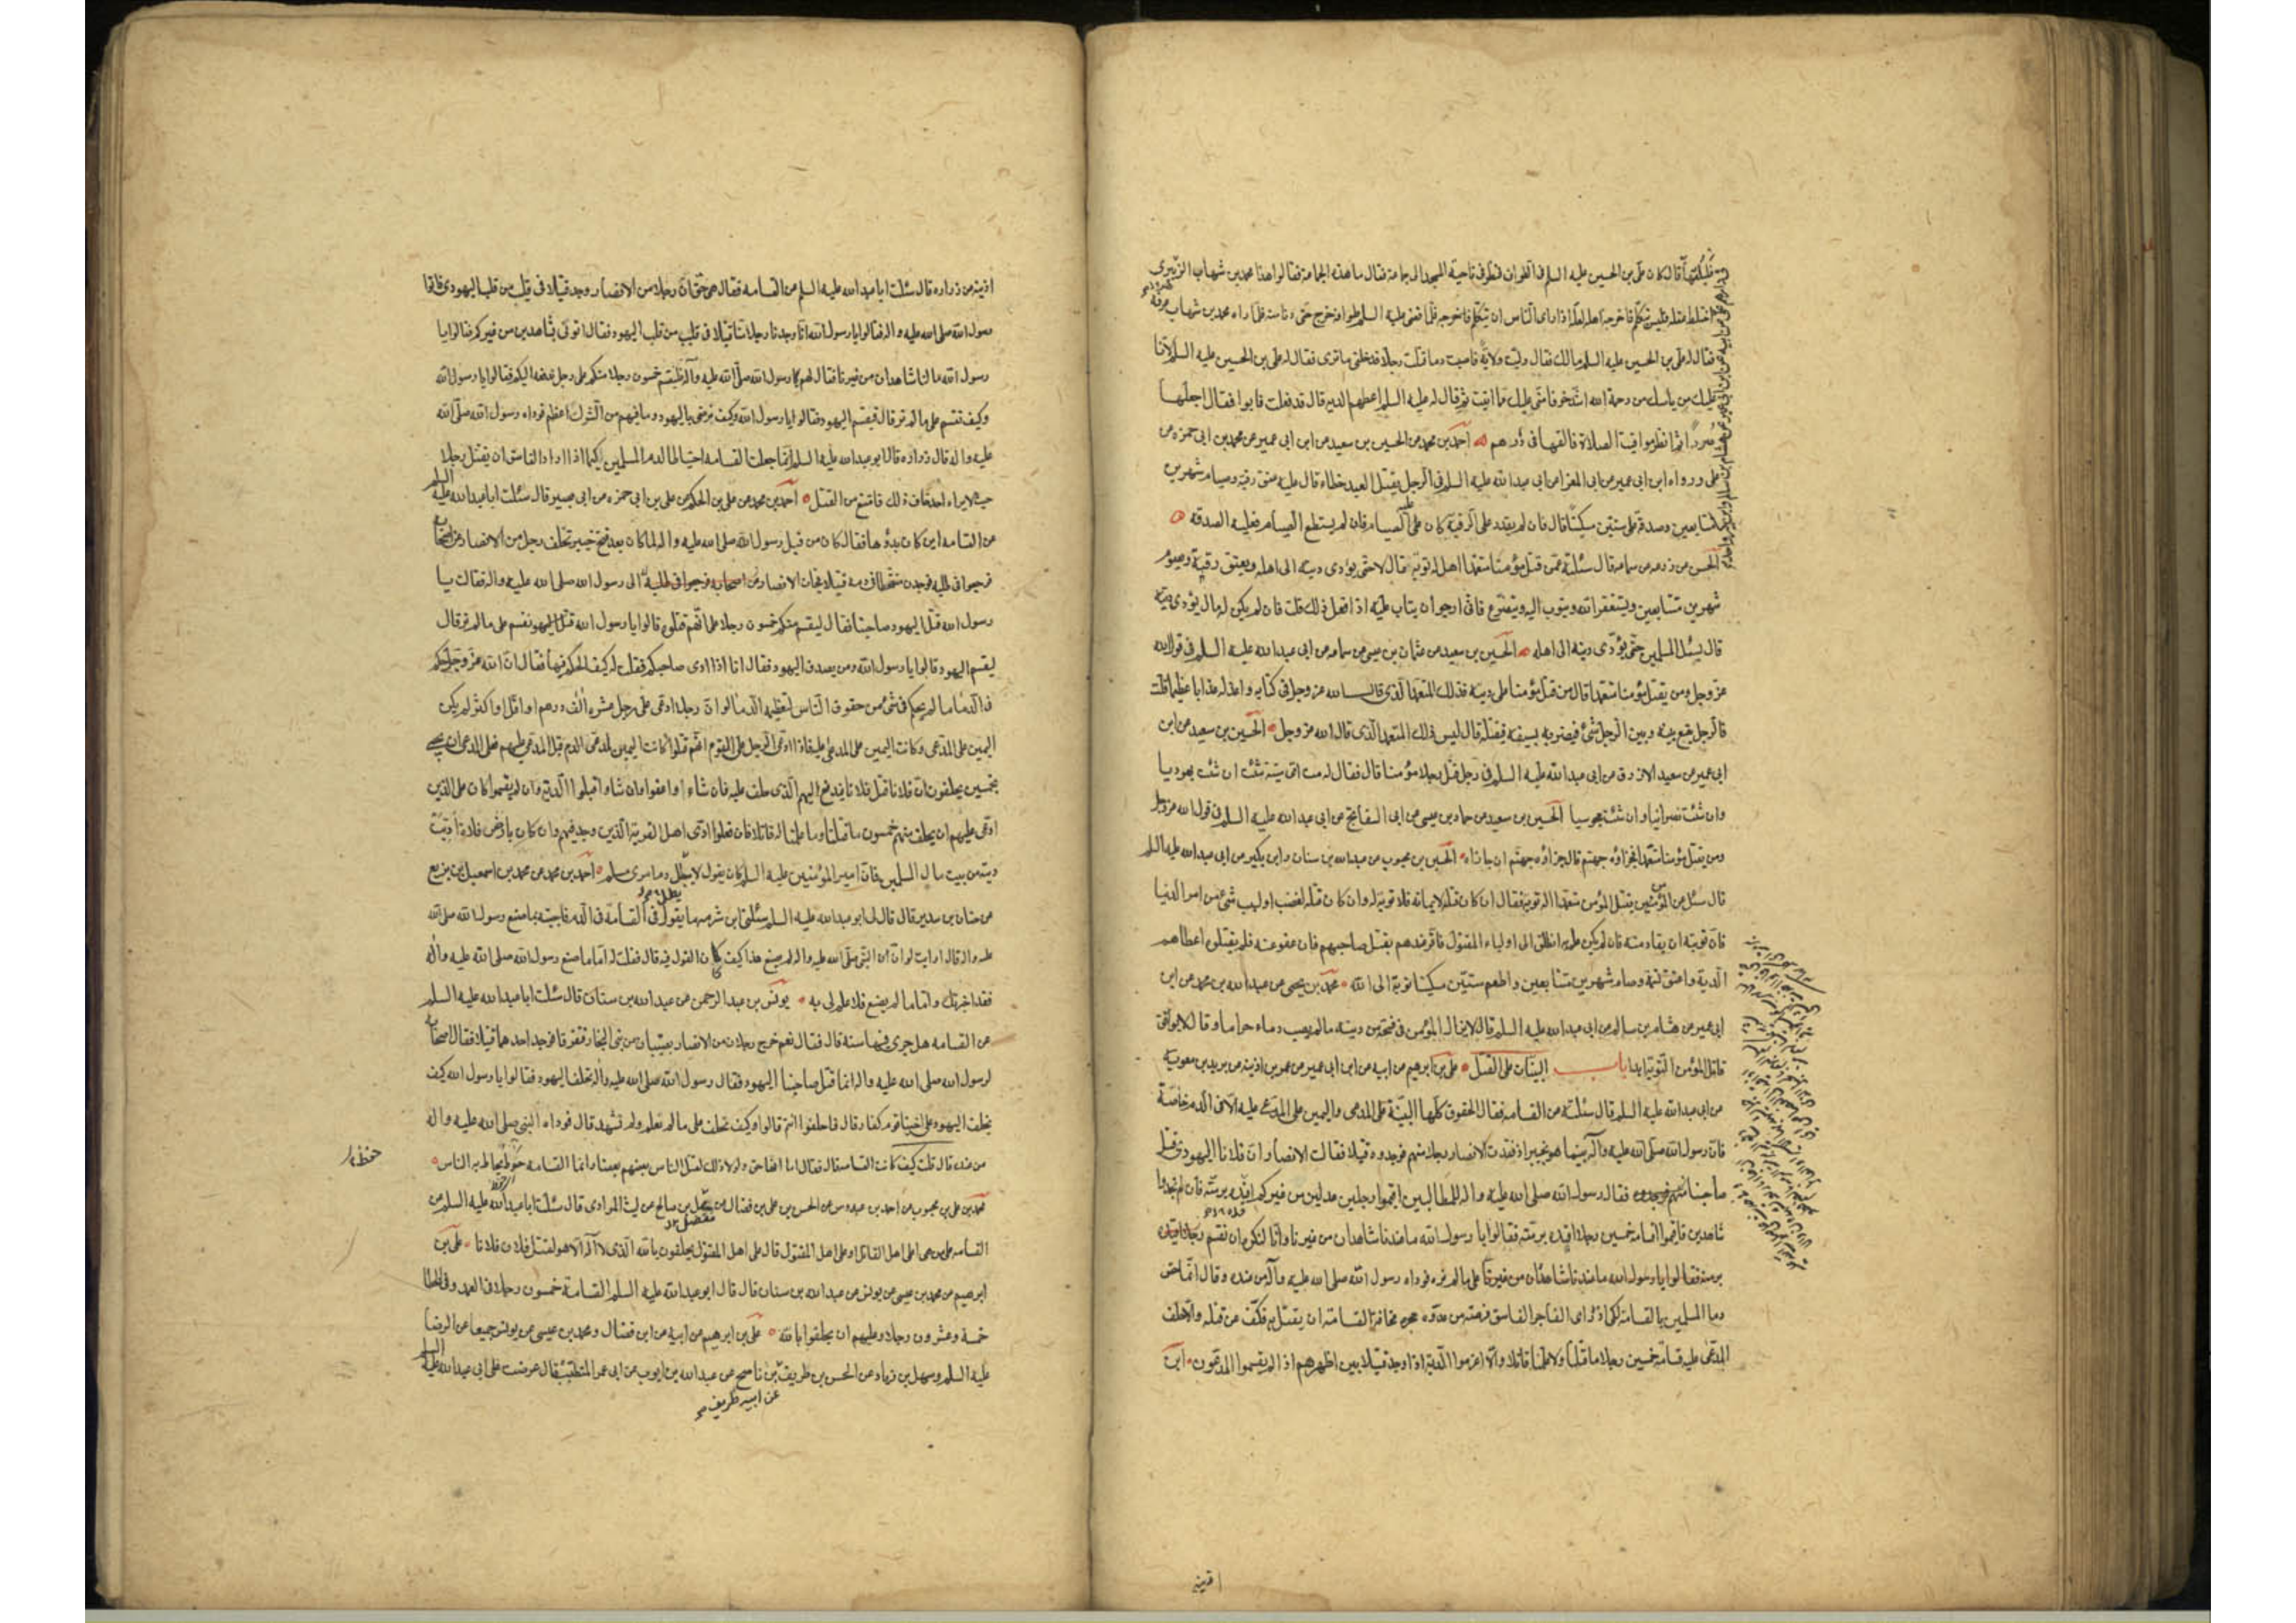 فليكتمها قال كان علي بن الحسين عليه السلم في الطواف فنظر في ناحية المسجد الى جماعة فقال ما هذه الجماعة فقالوا هذا محمد بن شهاب الزهري
اختلط عقله فليس يتكلم فاخرجه اهله لعله اذا راى الناس ان يتكلم فاخرجه فلما قضى عليه السلم طوافه خرج حتى دنا منه فلما راه محمد بن شهاب عرفه
فقال له علي بن الحسين عليه السلم مالك فقال وليت ولاية فاصبت دما قتلت رجلا فدخلني ما ترى فقال له علي بن الحسين عليه السلم لأنا
عليك من ياسك من رحمة الله اشد خوفا مني عليك مما اتيت ثم قال له عليه السلم اعطهم الدية قال قد فعلت فابوا فقال اجعلها
صررا ثم انظر مواقيت الصلاة فالقها في دارهم احمد بن محمد عن الحسين بن سعيد عن ابن ابي عمير عن محمد بن ابي حمزه عن
علي ورواه ابن ابي عمير عن ابي المغرا عن ابي عبد الله عليه السلم في الرجل يقتل العبد خطاء قال عليه عتق رقبة وصيام شهرين
متتابعين وصدقة على ستين مسكينا قال فان لم يقدر على الرقبة كان عليه الصيام فان لم يستطع الصيام فعليه الصدقة
الحسن عن زرعه عن سماعه قال سئلته عمن قتل مؤمنا متعمدا هل له توبة قال لا حتى يؤدى ديته الى اهله ويعتق رقبة ويصوم
شهرين متتابعين ويستغفر الله ويتوب اليه ويتضرع فاني ارجو ان يتاب عليه اذا فعل ذلك قلت فان لم يكن له مال يؤدى ديته
قال يسئل المسلمين حتى يؤدى ديته الى اهله الحسين بن سعيد عن عثمان بن عيسى عن سماعه عن ابي عبد الله عليه السلم في قول الله
عز وجل ومن يقتل مؤمنا متعمدا قال من قتل مؤمنا على دينه فذلك المتعمد الذي قال الله عز وجل في كتابه واعد له عذابا عظيما قلت
فالرجل يقع بينه وبين الرجل شئ فيضربه بسيفه فيقتله قال ليس ذلك المتعمد الذي قال الله عز وجل الحسين بن سعيد عن ابن
ابي عمير عن سعيد الازرق عن ابي عبد الله عليه السلم في رجل قتل رجلا مؤمنا قال فقال له مت اي ميتة شئت ان شئت يهوديا
وان شئت نصرانيا وان شئت مجوسيا الحسين بن سعيد عن حماد بن عيسى عن ابي السفاتج عن ابي عبد الله عليه السلم في قول الله عز وجل
ومن يقتل مؤمنا متعمدا فجزاؤه جهنم قال جزاؤه جهنم ان جازاه الحسن بن محبوب عن عبد الله بن سنان وابن بكير عن ابي عبد الله عليه السلم
قال سئل عن المؤمن يقتل المؤمن متعمدا اله توبة فقال ان كان قتله لايمانه فلا توبة له وان كان قتله لغضب او لسبب شئ من امر الدنيا
فان توبته ان يقاد منه فان لم يكن علم به انطلق الى اولياء المقتول فاقر عندهم بقتل صاحبهم فان عفو عنه فلم يقتلوه اعطاهم
الدية واعتق نسمة وصام شهرين متتابعين واطعم ستين مسكينا توبة الى الله محمد بن يحيى عن عبد الله بن محمد عن ابن
ابي عمير عن هشام بن سالم عن ابي عبد الله عليه السلم قال لا يزال المؤمن في فسحة من دينه مالم يصب دماء حراما وقال لا يوفق
قاتل المؤمن للتوبة ابدا باب البينات على القتل علي بن ابرهيم عن ابيه عن ابن ابي عمير عن عمر بن اذينه عن بريد بن معويه
عن ابي عبد الله عليه السلم قال سئلته عن القسامه فقال الحقوق كلها البينة على المدعى واليمين على المدعى عليه الا في الدم خاصة
فان رسول الله صلى الله عليه وآله بينما هو بخيبر اذ فقدت الانصار رجلا منهم فوجدوه قتيلا فقالت الانصار ان فلانا اليهودى قتل
صاحبنا فقال رسول الله صلى الله عليه واله للطالبين اقيموا رجلين عدلين من غيركم اقده برمته فان لم تجدوا
شاهدين فاقيموا قسامه خمسين رجلا اقيده برمته فقالوا يا رسول الله ما عندنا شاهدان من غيرنا وانا لنكره ان نقسم
على ما لم نره فوداه رسول الله صلى الله عليه وآله من عنده وقال انما حقن
دما المسلمين بالقسامه لكى اذ راى الفاجر الفاسق فرصته من عدوه حجزه مخافة القسامة ان يقتل به فكف عن قتله والا حلف
المدعى عليه قسامه خمسين رجلا ما قتلنا ولا علمنا قاتلا والا اغرموا الدية اذا وجد قتيلا بين اظهرهم اذا لم يقسموا المدعون ابن
اذينه
اذينه عن زراره قال سئلت ابا عبد الله عليه السلم عن القسامه فقال هى حق ان رجلا من الانصار وجد قتيلا في قليب من قلب اليهود فاتوا
رسول الله صلى الله عليه واله فقالوا يا رسول الله انا وجدنا رجلا منا قتيلا في قليب من قلب اليهود فقال ائتونى بشاهدين من غيركم فقالوا يا
رسول الله ما لنا شاهدان من غيرنا فقال لهم رسول الله صلى الله عليه وآله فليقسم خمسون رجلا منكم على رجل ندفعه اليكم فقالوا يا رسول الله
وكيف نقسم على ما لم نر قال فيقسم اليهود فقالوا يا رسول الله وكيف نرضى باليهود وما فيهم من الشرك اعظم فوداه رسول الله صلى الله
عليه واله قال زراره قال ابو عبد الله عليه السلم انما جعلت القسامه احتياطا لدم المسلمين كيما اذا اراد الفاسق ان يقتل رجلا
حيث لا يراه احد خاف ذلك فامتنع من القتل احمد بن محمد عن علي بن الحكم عن علي بن ابي حمزه عن ابي بصير قال سئلت ابا عبد الله عليه السلم
عن القسامه اين كان بدؤها فقال كان من قبل رسول الله صلى الله عليه واله لما كان بعد فتح خيبر تخلف رجل من الانصار عن اصحابه
فرجعوا في طلبه فوجدوه متشحطا في دمه قتيلا فجاءت الانصار الى رسول الله صلى الله عليه واله فقالت يا
رسول الله قتل اليهود صاحبنا فقال ليقسم منكم خمسون رجلا على انهم قتلوه قالوا يا رسول الله نقسم على مالم نر قال
ليقسم اليهود قالوا يا رسول الله ومن يصدق اليهود فقال انا اذا ادى صاحبكم فقلت له كيف الحكم فيها فقال ان الله عز وجل حكم
في الدماء ما لم يحكم في شئ من حقوق الناس لتعظيمه الدماء لو ان رجلا ادعى على رجل عشره الف درهم او اقل او اكثر لم يكن
اليمين على المدعى وكانت اليمين على المدعى عليه فاذا ادعى الرجل على القوم انهم قتلوا كانت اليمين لمدعى الدم قبل المدعى عليهم فعلى المدعى ان يجئ
بخمسين يحلفون ان فلانا قتل فلانا فيدفع اليهم الذى حلف عليه فان شاءوا عفوا وان شاوا قبلوا الدية وان لم يقسموا كان على الذين
ادعى عليهم ان يحلف منهم خمسون ما قتلنا وما علمنا له قاتلا فان فعلوا ادى اهل القرية الذين وجد فيهم وان كان بارض فلاة اديت
ديته من بيت مال المسلمين فان امير المؤمنين عليه السلم كان يقول لا يبطل دم امرئ مسلم احمد بن محمد عن محمد بن اسمعيل بن بزيع
عن حنان بن سدير قال قال لى ابو عبد الله عليه السلم سئلنى ابن شبرمه ما يقول في القسامة في الدم فاجبته بما صنع رسول الله صلى الله
عليه واله قال ارايت لو ان النبي صلى الله عليه واله لم يصنع هذا كيف كان القول فيه قال فقلت له اما ما صنع رسول الله صلى الله عليه وآله
فقد اخبرتك واما ما لم يصنع فلا علم لى به يونس بن عبد الرحمن عن عبد الله بن سنان قال سئلت ابا عبد الله عليه السلم
عن القسامه هل جرى فيها سنة قال فقال نعم خرج رجلان من الانصار يصيبان من بنى النجار فتفرقا فوجد احدهما قتيلا فقال اصحابه
لرسول الله صلى الله عليه واله انما قتل صاحبنا اليهود فقال رسول الله صلى الله عليه وآله تحلف اليهود فقالوا يا رسول الله كيف
يحلف اليهود على اخينا قوم كفار قال فاحلفوا انتم قالوا وكيف نحلف على ما لم نعلم ولم نشهد قال فوداه النبي صلى الله عليه واله
من عنده قال قلت كيف كانت القسامه قال فقال اما انها حق ولولا ذلك لقتل الناس بعضهم بعضا وانما القسامه حوط يحاط به الناس
محمد بن علي بن محبوب عن احمد بن عبدوس عن الحسن بن علي بن فضال عن مفضل بن صالح عن ليث المرادى قال سئلت ابا عبد الله عليه السلم عن
القسامه على من هى اعلى اهل القاتل او على اهل المقتول قال على اهل المقتول يحلفون بالله الذى لا اله الا هو لقتل فلان فلانا علي بن
ابرهيم عن محمد بن عيسى عن يونس عن عبد الله بن سنان قال قال ابو عبد الله عليه السلم القسامة خمسون رجلا في العمد وفي الخطا
خمسة وعشرون رجلا وعليهم ان يحلفوا بالله علي بن ابرهيم عن ابيه عن ابن فضال ومحمد بن عيسى عن يونس جميعا عن الرضا
عليه السلم وسهل بن زياد عن الحسن بن ظريف بن ناصح عن عبد الله بن ايوب عن ابي عمر المتطبب قال عرضت على ابي عبد الله عليه السلم
عن ابيه ظريف